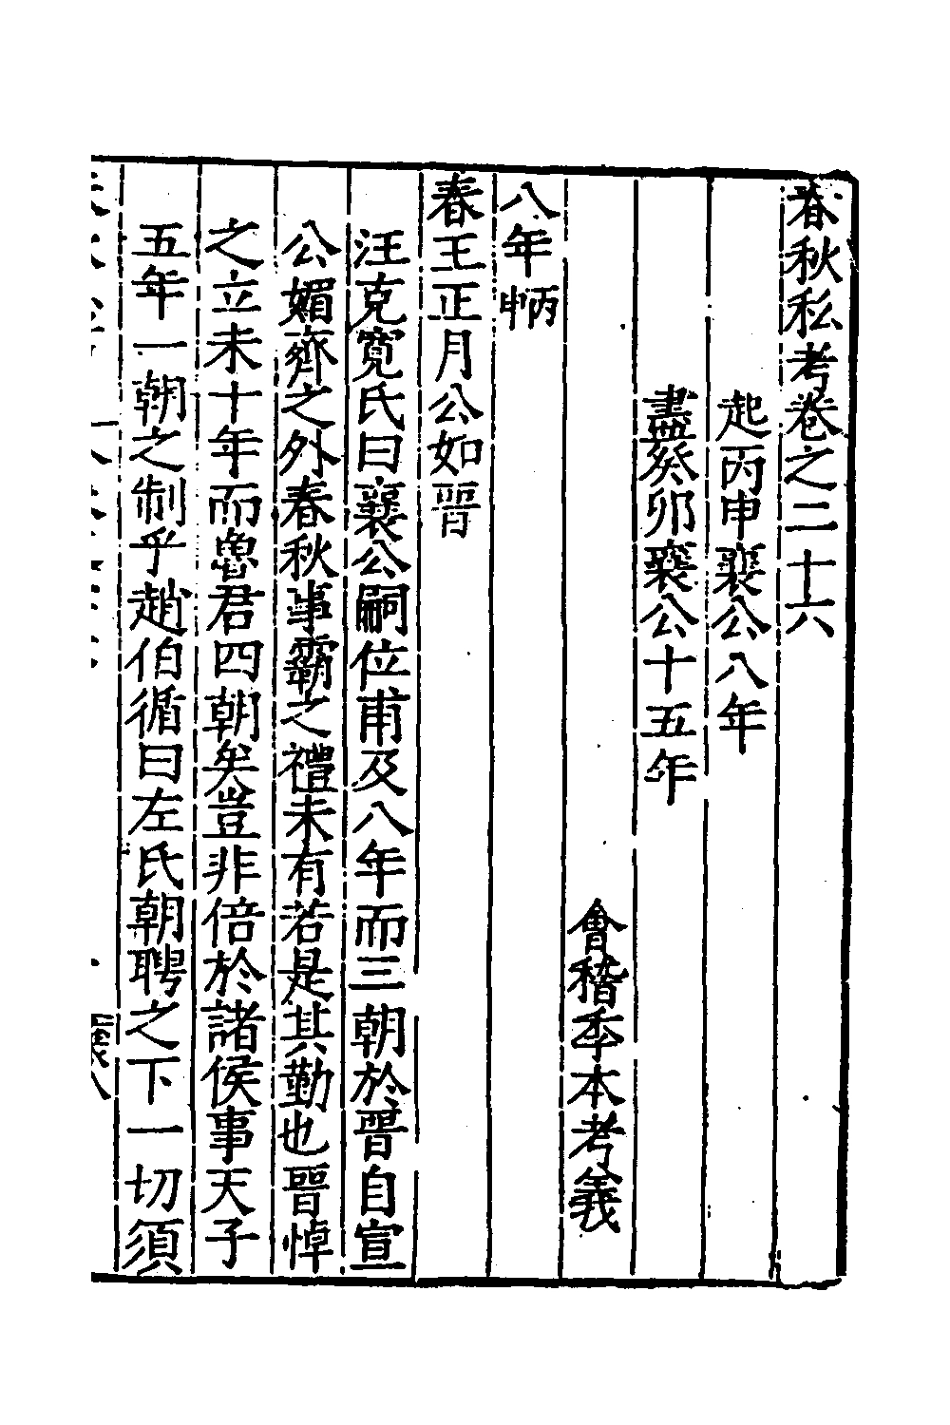 春秋私考卷之二十六
起丙申襄公八年
盡癸卯襄公十五年
會稽季本考義
八年丙申
春王正月公如晉
汪克寬氏曰襄公嗣位甫及八年而三朝於晉自宣
公媚齊之外春秋事霸之禮未有若是其勤也晉悼
之立未十年而魯君四朝矣豈非倍於諸侯事天子
五年一朝之制乎趙伯循曰左氏朝聘之下一切須
襄八